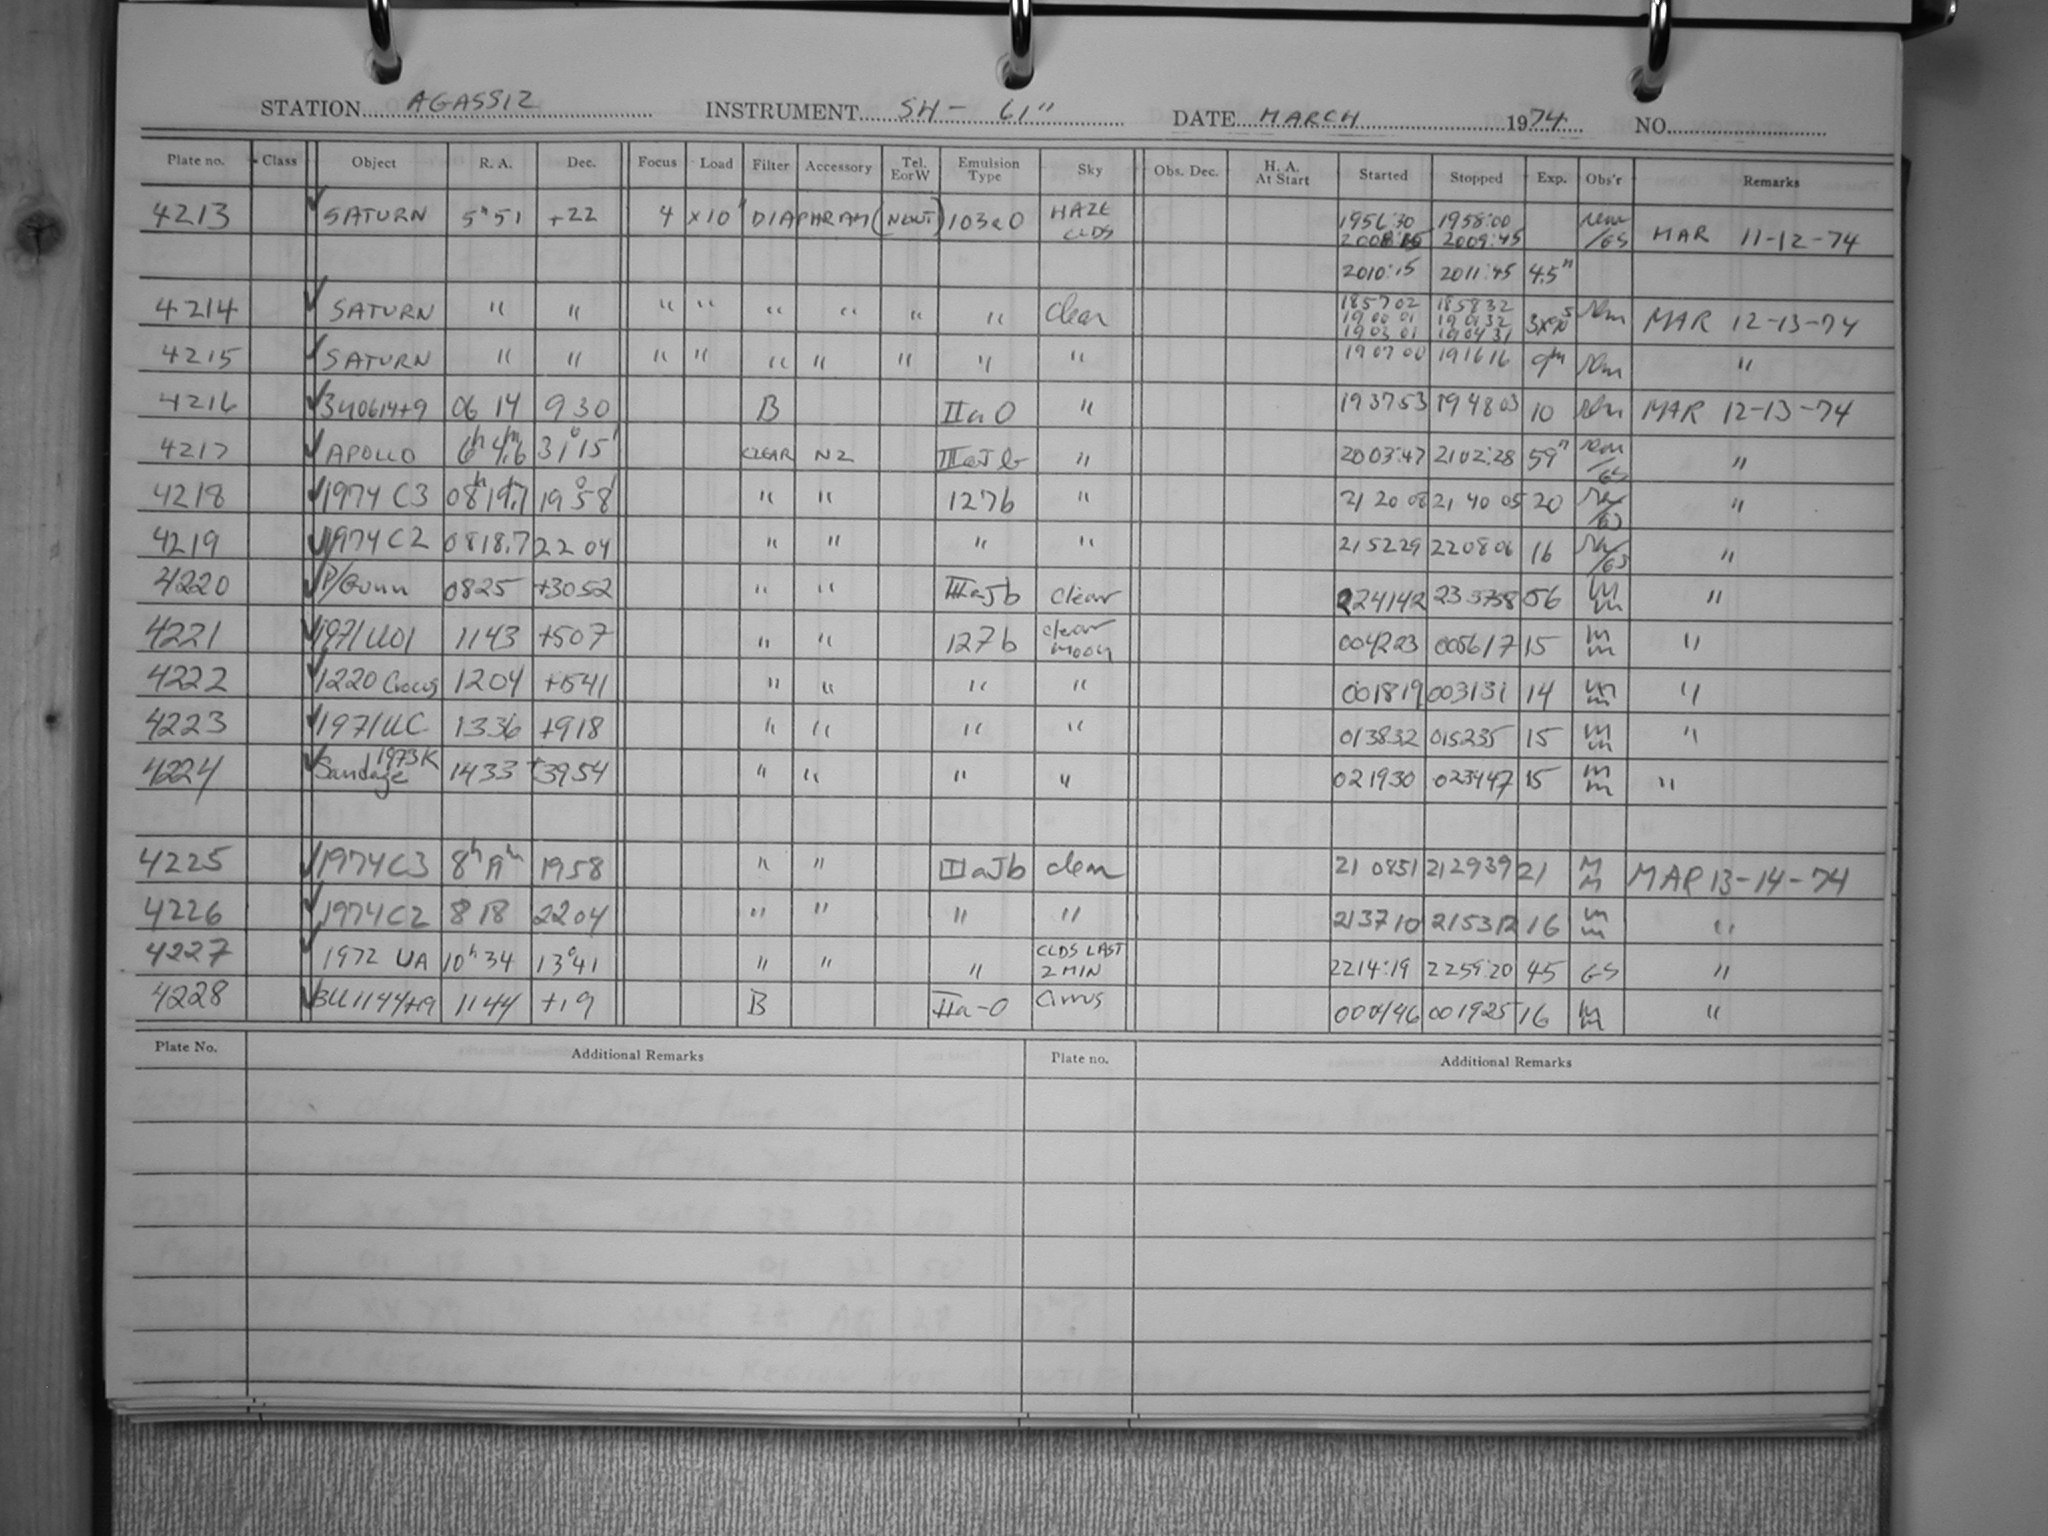 STATION AGASSIZ INSTRUMENT SH - 61" DATE MARCH 1974 NO.
Plate no. Class Object R. A. Dec. Focus Load Filter Accessory Tel. EorW Emulsion Type Sky Obs. Dec. H. A. At Start Started Stopped Exp. Obs'r Remarks
4213 SATURN 5h51 +22 4 ×10" DIAPHRAM (NEWT) 103a0 HAZE CLDS 1956:30 1958:00 MAR 11-12-74
2009:45 /GS
2010:15 2011:45 4.5m
4214 SATURN " " " " " " " " clear 185702 185832 MAR 12-13-74
190001 190132
190301 190431
4215 SATURN " " " " " " " " " 190700 191616 9m "
4216 3U0614+9 06 14 9 30 B IIa0 " 193753 194803 10 MAR 12-13-74
4217 APOLLO 6h 4m.6 31°15' CLEAR N2 IIIaJb " 2003:47 2102:28 59m /GS "
4218 1974 C3 08h19.7 19°58' " " 127b " 21 20 08 21 40 05 20 /GS "
4219 1974 C2 0818.7 22 04 " " " " 215229 220806 16 /GS "
4220 P/Gunn 0825 +3052 " " IIIaJb clear 224142 233738 56 "
4221 1971 UO1 1143 +507 " " 127b clear moon 004223 005617 15 "
4222 1220 Crocus 1204 +1541 " " " " 001819 003131 14 "
4223 1971UC 1336 +918 " " " " 013832 015235 15 "
4224 Sandage 1973K 1433 +3954 " " " " 021930 023447 15 "
4225 1974C3 8h19m 1958 " " IIIaJb clear 21 0851 212939 21 MM MAR 13-14-74
4226 1974C2 8 18 2204 " " " " 213710 215312 16 "
4227 1972 UA 10h34 13°41 " " " CLDS LAST 2 MIN 2214:19 2259:20 45 GS "
4228 3U1144+19 1144 +19 B IIa-O Cirrus 001925 16 "
Plate No. Additional Remarks Plate no. Additional Remarks